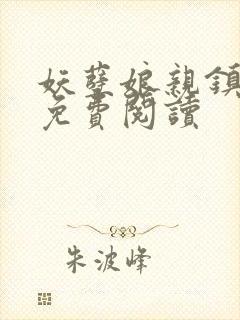 妖孽娘親鎮
免費閱讀
朱波峰